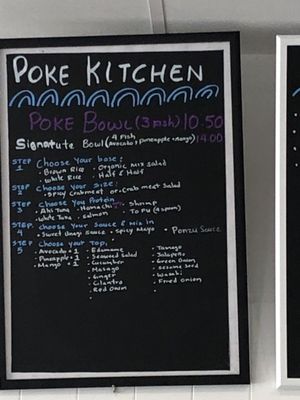 POKE KITCHEN
POKE BOWL (3 Fish) 10.50
Signatute Bowl (4 Fish Avocado, Pineapple, Mango) 14.00
STEP 1 Choose Your base:
• Brown Rice • Organic Mix Salad
• White Rice • Half & Half
STEP 2 Choose Your Size:
• Spicy Crabmeat or Crab meat Salad
STEP 3 Choose You Protein
• Ahi Tuna • Hamachi • Shrimp
• White Tuna • Salmon • To Fu (4 spam)
STEP. Choose Your Sauce & Mix in
• Sweet Unagi Sauce • Spicy Mayo • Ponzu Sauce
STEP 5 Choose Your Top,
• Avocado + 1 • Edamame • Tamago
• Pineapple + 1 • Seaweed Salad • Jalapeño
• Mango + 1 • Cucumber • Green Onion
• Masago • Sesame Seed
• Ginger • Wasabi
• Cilantro • Fried Onion
• Red Onion